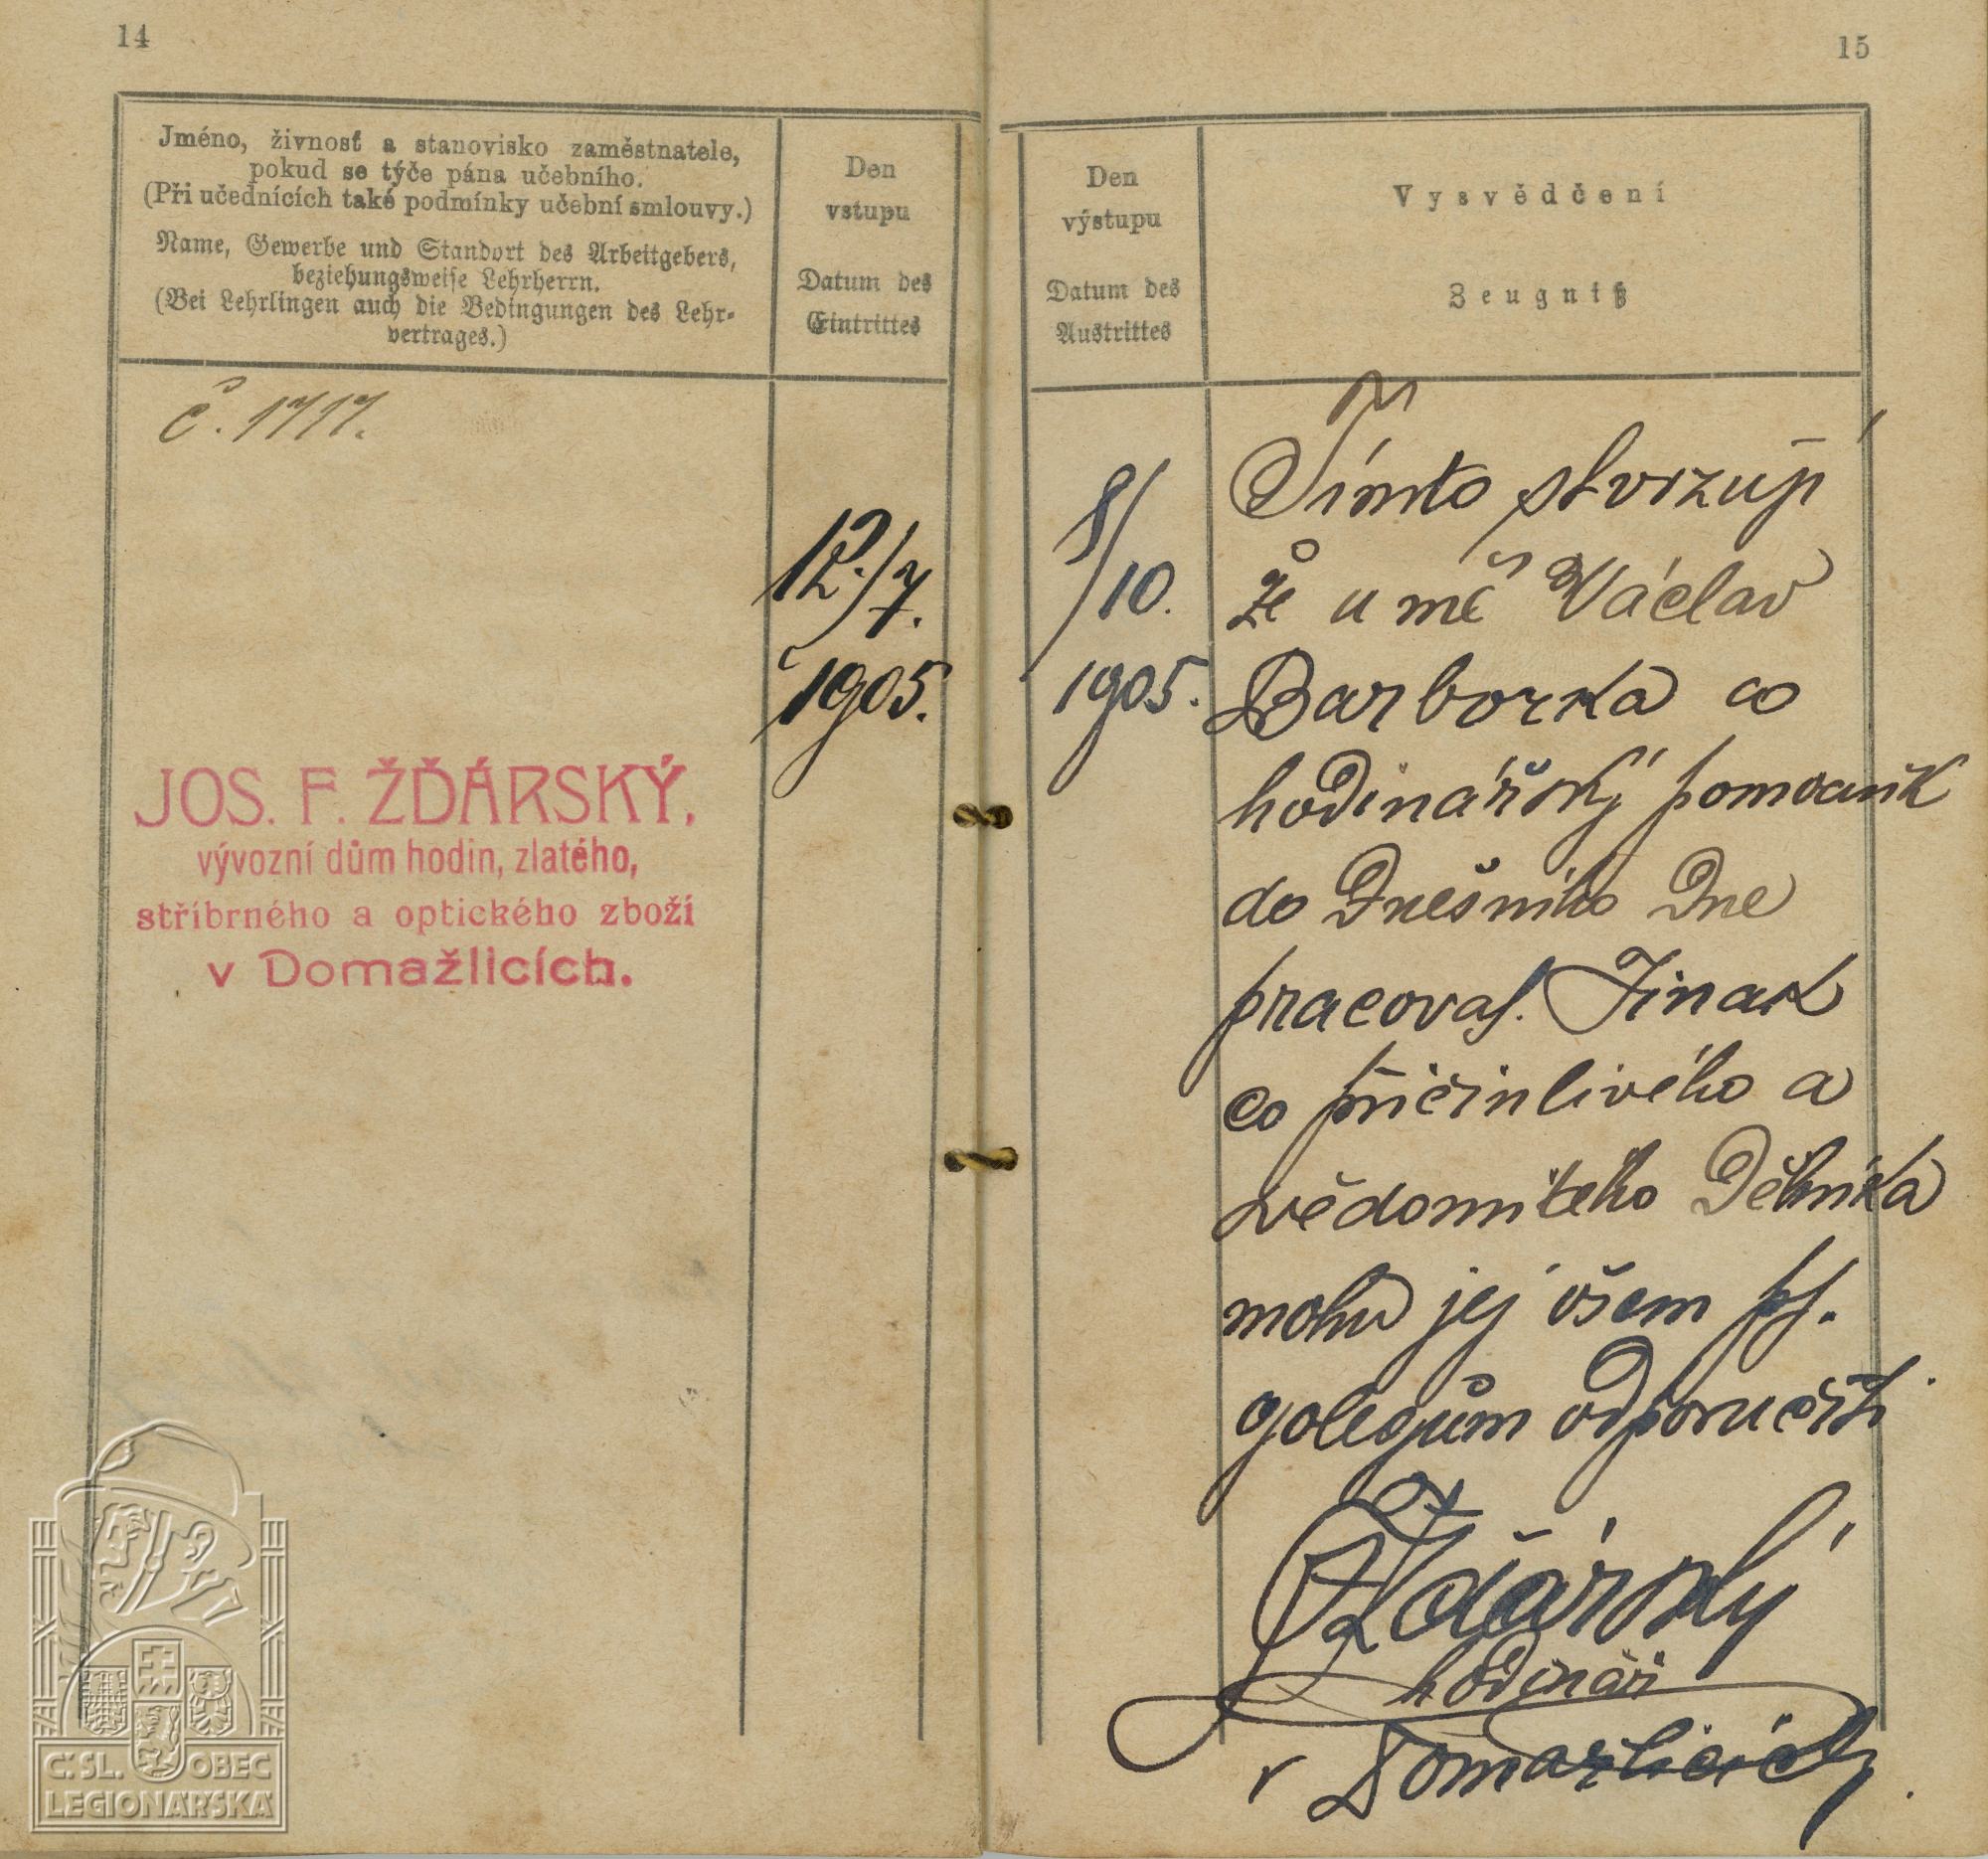 14
Jméno, živnosť a stanovisko zaměstnatele,
pokud se týče pána učebního.
(Při učednících také podmínky učební smlouvy.)
Name, Gewerbe und Standort des Arbeitgebers,
beziehungsweise Lehrherrn.
(Bei Lehrlingen auch die Bedingungen des Lehr-
vertrages.)
Den
vstupu
Datum des
Eintrittes
č. 1717.
12./7.
1905.
JOS. F. ŽĎÁRSKÝ,
vývozní dům hodin, zlatého,
stříbrného a optického zboží
v Domažlicích.
15
Den
výstupu
Datum des
Austrittes
Vysvědčení
Zeugniß
8/10.
1905.
Tímto stvrzuji
že u mě Václav
Barborka co
hodinářský pomocník
do Dnešního Dne
pracoval. Jinak
co přičinlivého a
vědomitého Dělníka
mohu jej všem
golegům odporučiti
Žďárský
hodinář
v Domažlicích.
Č.SL. OBEC
LEGIONÁŘSKÁ